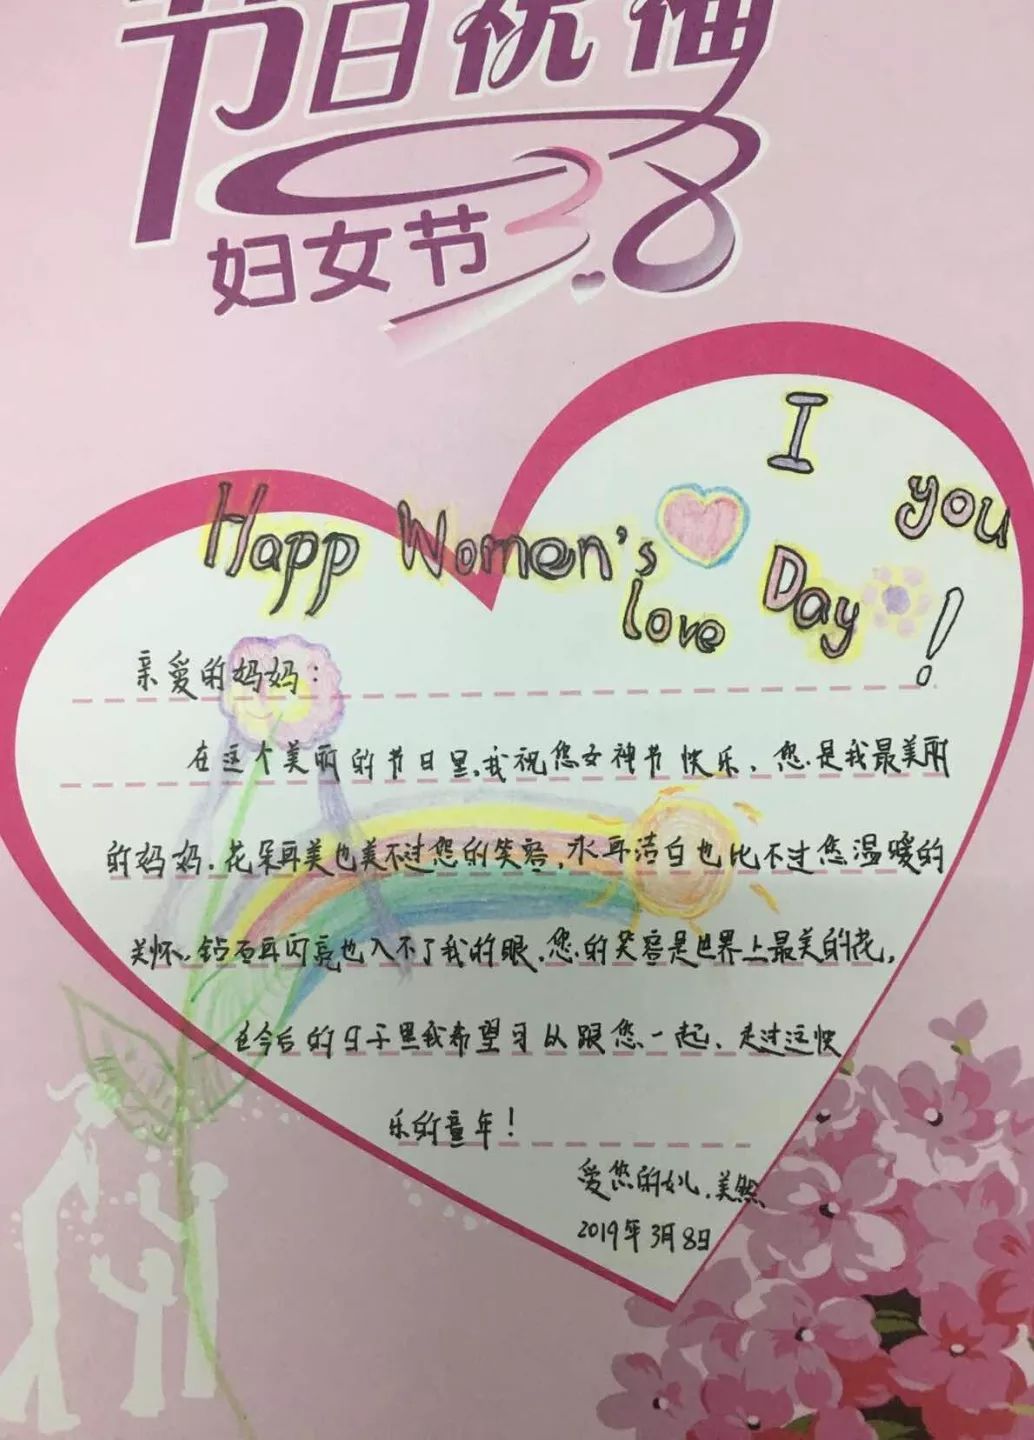 节日祝福
妇女节 3.8
I
you
Happ Women's
love
Day
!
亲爱的妈妈：
在这个美丽的节日里，我祝您女神节快乐，您是我最美丽
的妈妈，花朵再美也美不过您的笑容，水再洁白也比不过您温暖的
关怀，钻石再闪亮也入不了我的眼，您的笑容是世界上最美的花，
在今后的日子里我希望可以跟您一起，走过这快
乐的童年！
爱您的女儿，美然
2019年3月8日